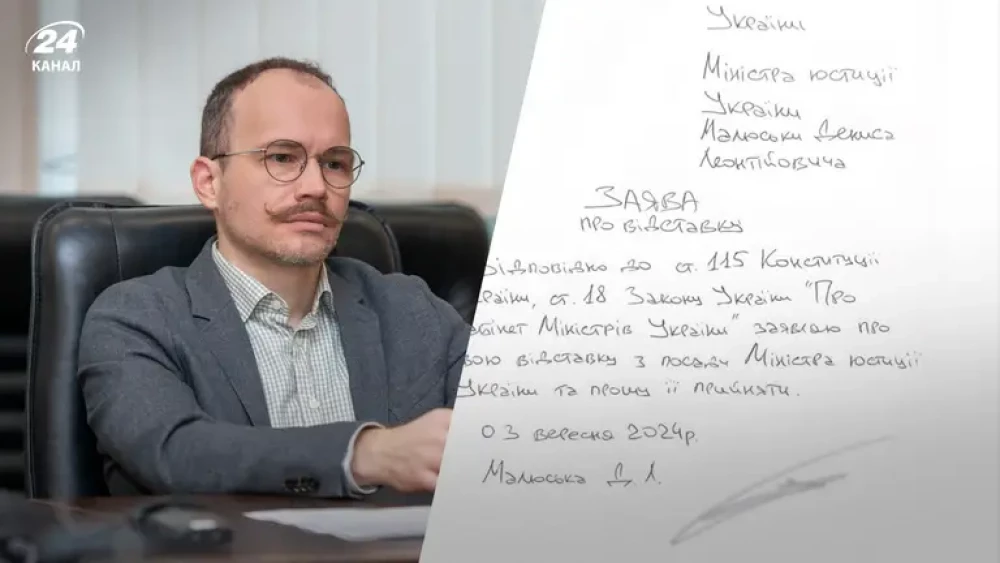 24
КАНАЛ
України
Міністра юстиції
України
Малюськи Дениса
Леонтійовича
ЗАЯВА
про відставку
Відповідно до ст. 115 Конституції
країни, ст. 18 Закону України "Про
абінет Міністрів України" заявляю про
вою відставку з посади Міністра юстиції
України та прошу її прийняти.
03 вересня 2024р.
Малюська Д. Л.